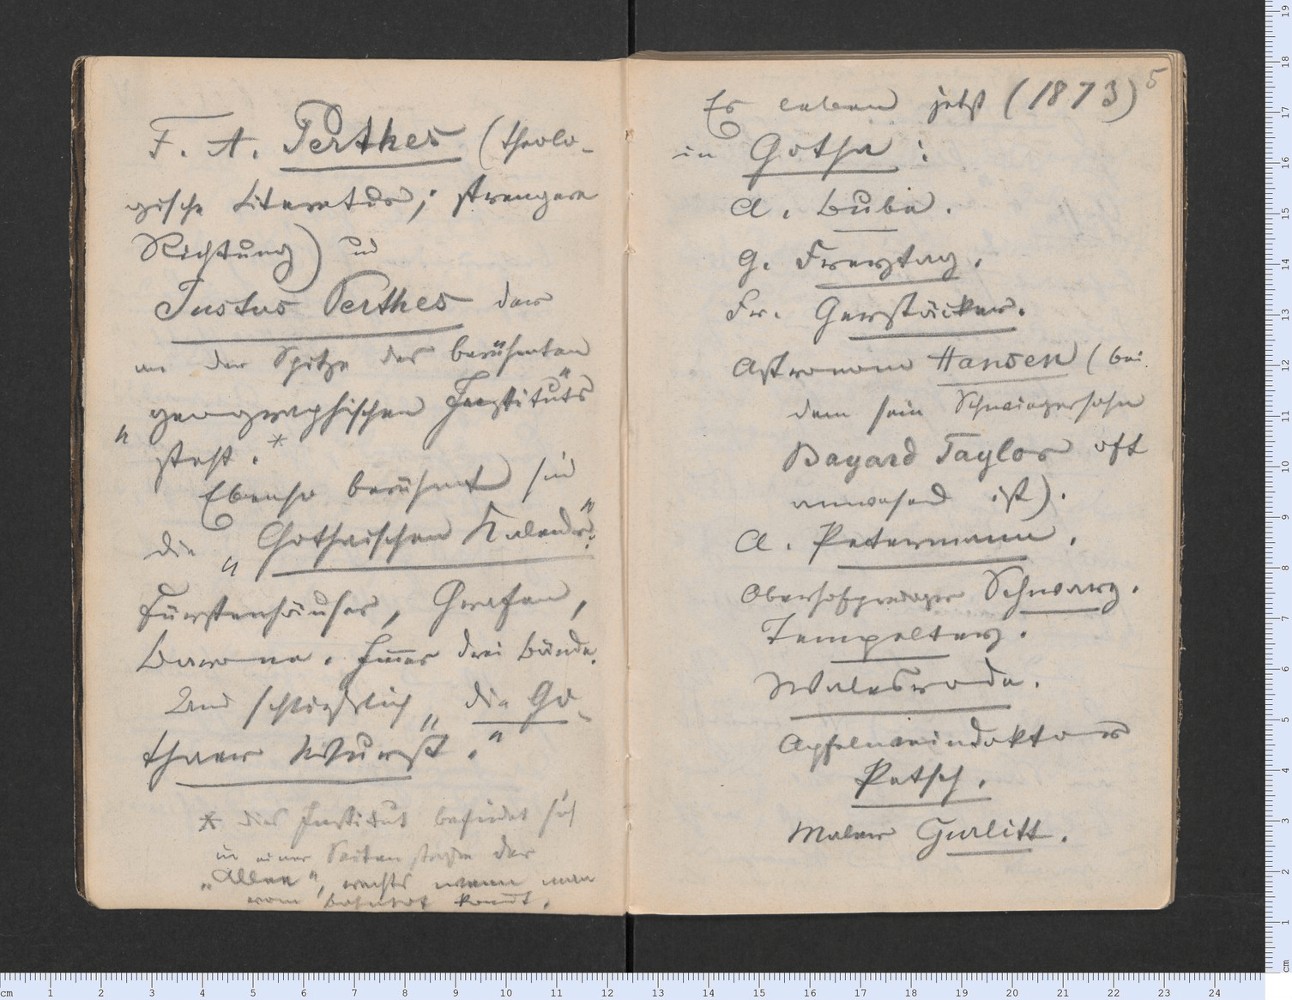 F. A. Perthes (theolo-
gische Literatur; strengere
Richtung) und
Justus Perthes der
an der Spitze des berühmten
„geographischen Instituts“
steht.*
Ebenso berühmt sind
die „Gothaischen Kalender“:
Fürstenhäuser, Grafen,
Barone. Immer drei Bände.
Und schließlich „die Go-
thaer Wurst.“
* dies Institut befindet sich
in einer Seitenstraße der
„Allee“, rechts wenn man
vom Bahnhof kommt.
5
Es leben jetzt (1873)
in Gotha:
A. Bube.
G. Freytag.
Fr. Gerstäcker.
Astronom Hansen (bei
dem sein Schwiegersohn
Bayard Taylor oft
anwesend ist).
A. Petermann.
Oberhofprediger Schwarz.
Tempeltey.
Walesrode.
Apfelweindoktor
Petsch.
Maler Gurlitt.